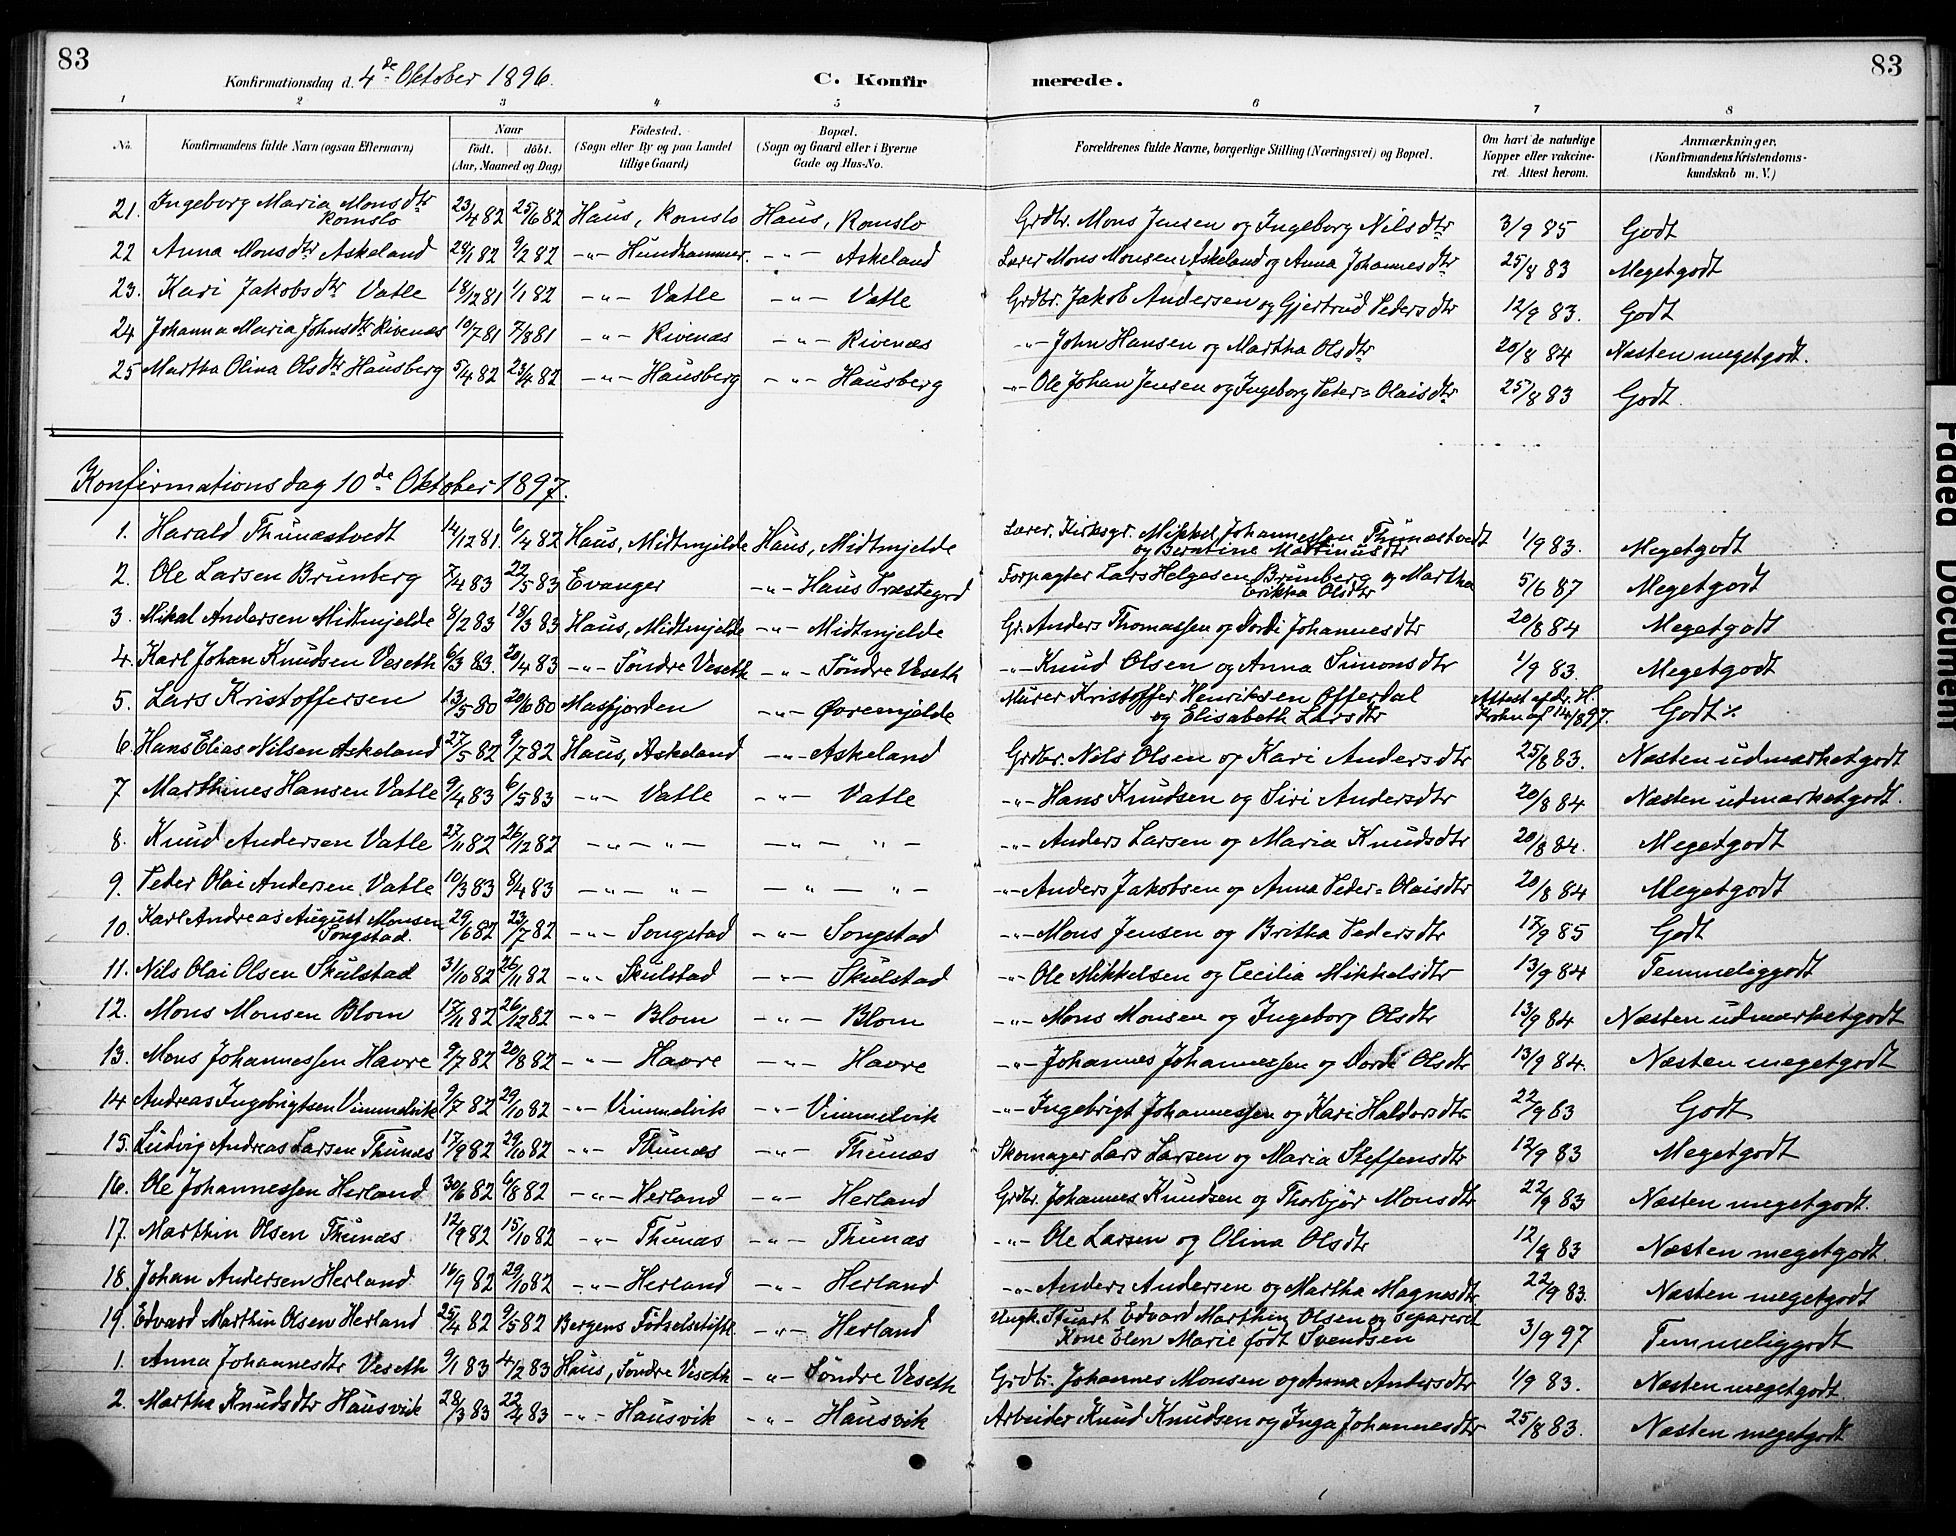 83
83
Konfirmationsdag d. 4de Oktober 1896.
C. Konfirmerede.
1 2 3 4 5 6 7 8
No. Konfirmandens fulde Navn (ogsaa Efternavn) Naar født. døbt. (Aar, Maaned og Dag) Fødested. (Sogn eller By og paa Landet tillige Gaard) Bopæl. (Sogn og Gaard eller i Byerne Gade og Hus-No. Forældrenes fulde Navne, borgerlige Stilling (Næringsvei) og Bopæl. Om havt de naturlige Kopper eller vakcineret. Attest herom. Anmærkninger. (Konfirmandens Kristendomskundskab m. V.)
21. Ingeborg Maria Monsdtr Romslo 23/4 82 25/6 82 Haus, Romslo Haus, Romslo Grdbr. Mons Jensen og Ingeborg Nilsdtr 3/9 85 Godt
22 Anna Monsdtr Askeland 28/1 82 9/2 82 -"- Hundhammer -"- Askeland Lærer Mons Monsen Askeland og Anna Johannesdtr 25/8 83 Megetgodt
23. Kari Jakobsdtr Vatle 18/12 81 1/1 82 -"- Vatle -"- Vatle Grdbr. Jakob Andersen og Gjertrud Pedersdtr 12/9 83. Godt
24 Johanna Maria Johnsdtr Rivenæs 10/7 81 7/8 81 -"- Rivenæs -"- Rivenæs -"- John Hansen og Martha Olsdtr 20/8 84 Næsten megetgodt.
25 Martha Olina Olsdtr Hausberg 5/4 82 23/4 82 -"- Hausberg -"- Hausberg -"- Ole Johan Jensen og Ingeborg Peter=Olaisdtr 25/8 83 Godt.
Konfirmationsdag 10de Oktober 1897.
1. Harald Thunæstvedt 14/12 81. 6/4 82 Haus, Midtmjelde Haus, Midtmjelde Lærer, Kirkesgr. Mikkel Johannessen Thunæstvedt og Berntine Martinusdtr 1/9 83. Megetgodt
2. Ole Larsen Brunberg 7/4 83 22/5 83 Evanger -"- Haus Præstegrd Forpagter Lars Helgesen Brunberg og Martha Erikka Olsdtr 5/6 87 Megetgodt
3. Mikal Andersen Midtmjelde 8/2 83 18/3 83 Haus, Midtmjelde -"- Midtmjelde Gr. Anders Thomassen og Dordi Johannesdtr 20/8 84 Megetgodt
4. Karl Johan Knudsen Veseth 6/3 83. 20/4 83 -"- Søndre Veseth -"- Søndre Veseth -"- Knud Olsen og Anna Simonsdtr 1/9 83. Megetgodt
5. Lars Kristoffersen 13/5 80 20/6 80 Masfjorden -"- Øvremjelde Murer Kristoffer Henriksen Offerdal og Elisabeth Larsdtr Attest af Dr. H. Krohn af 14/8 97. Godt %
6. Hans Elias Nilsen Askeland 27/5 82 9/7 82 Haus, Askeland -"- Askeland Grdbr. Nils Olsen og Kari Andersdtr 25/8 83. Næsten udmærketgodt
7 Marthines Hansen Vatle 9/4 83 6/5 83 -"- Vatle -"- Vatle -"- Hans Knudsen og Siri Andersdtr 20/8 84 Næsten udmærketgodt.
8. Knud Andersen Vatle 27/11 82 26/12 82 -"- "- -"- "- -"- Anders Larsen og Maria Knudsdtr 20/8 84. Megetgodt
9. Peder Olai Andersen Vatle 10/3 83 8/4 83 -"- "- -"- "- -"- Anders Jakobsen og Anna Peder=Olaisdtr 20/8 84 Megetgodt
10. Karl Andreas August Monsen Songstad. 29/6 82 23/7 82 -"- Songstad -"- Songstad -"- Mons Jensen og Britha Pedersdtr 17/9 85 Godt
11. Nils Olai Olsen Skulstad 31/10 82 26/11 82 -"- Skulstad -"- Skulstad -"- Ole Mikkelsen og Cecilia Mikkelsdtr 13/9 84 Temmeliggodt
12. Mons Monsen Blom 17/11 82 26/12 82 -"- Blom -"- Blom -"- Mons Monsen og Ingeborg Olsdtr 13/9 84 Næsten udmærketgodt
13. Mons Johannessen Havre 9/7 82 20/8 82 -"- Havre -"- Havre -"- Johannes Johannessen og Dordi Olsdtr 13/9 84. Næsten megetgodt
14 Andreas Ingebrigtsen Vimmelvik 9/7 82 29/10 82 -"- Vimmelvik -"- Vimmelvik -"- Ingebrigt Johannessen og Kari Haldorsdtr 22/9 83 Godt
15. Ludvig Andreas Larsen Thunæs 17/9 82 29/10 82 -"- Thunæs -"- Thunæs Skomager Lars Larsen og Maria Steffensdtr 12/9 83 Megetgodt
16. Ole Johannessen Herland 30/6 82 6/8 82 -"- Herland -"- Herland Grdbr. Johannes Knudsen og Thorbjør Monsdtr 22/9 83 Næsten megetgodt.
17. Marthin Olsen Thunæs 12/9 82 15/10 82 -"- Thunæs -"- Thunæs -"- Ole Larsen og Olina Olsdtr 12/9 83 Næsten megetgodt.
18. Johan Andersen Herland 16/9 82 29/10 82 -"- Herland -"- Herland -"- Anders Andersen og Martha Magnesdtr 22/9 83. Næsten megetgodt
19. Edvard Marthin Olsen Herland 25/4 82 9/5 82 Bergens Fødselsstift. -"- Herland Ungk. Stuart Edvard Marthin Olsen og separeret Kone Elen Marie født Svendsen 3/9 97 Temmeliggodt
1. Anna Johannesdtr Veseth 9/1 83 4/2 83 Haus, Søndre Veseth -"- Søndre Veseth Grdbr. Johannes Monsen og Anna Andersdtr 1/9 83. Næsten megetgodt.
2. Martha Knudsdtr Hausvik 28/3 83 22/4 83 -"- Hausvik -"- Hausvik Arbeider Knud Knudsen og Inga Johannesdtr 25/8 83. Næsten megetgodt
Faded Document